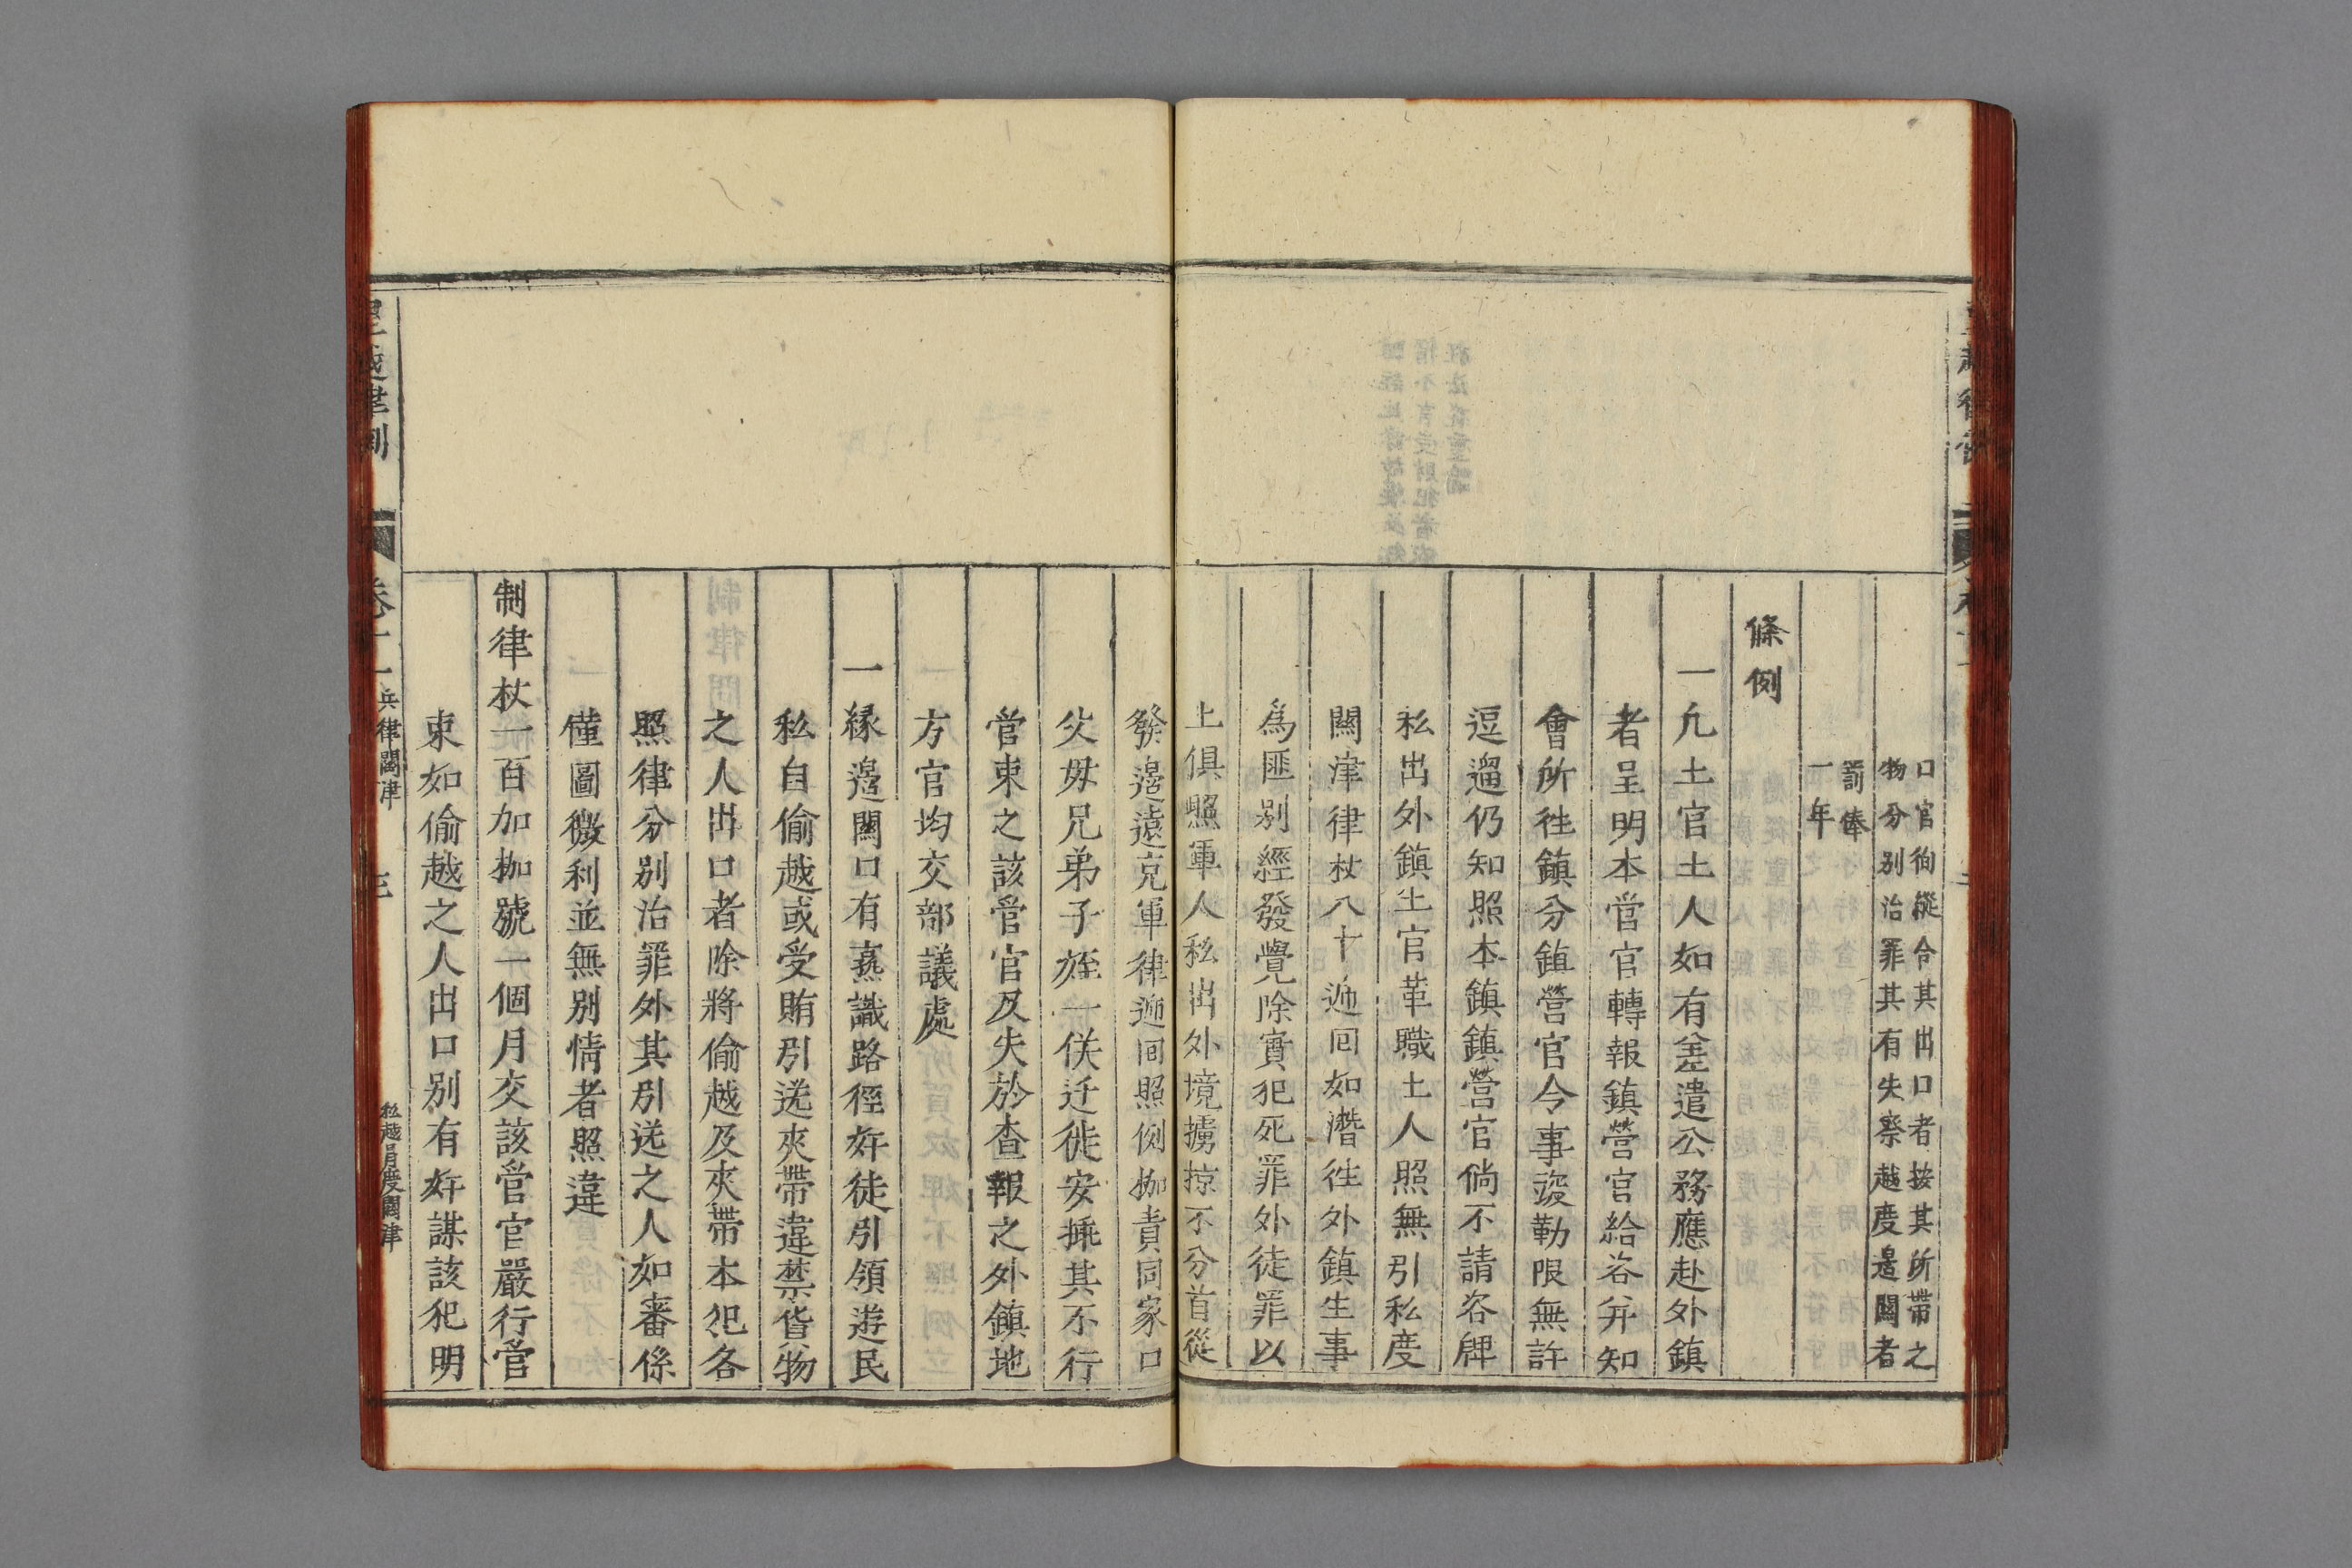 口官徇縱合其出口者按其所帶之
物分别治罪其有失察越度邉關者
罰俸
一年
條例
一凢土官土人如有差遣公務應赴外鎮
者呈明本營官轉報鎮營官給咨并知
會所徃鎮分鎮營官令事竣勒限無許
逗遛仍知照本鎮鎮營官倘不請咨牌
私出外鎮土官革職土人照無引私度
關津律杖八十逓囘如潛徃外鎮生事
爲匪别經發覺除實犯死罪外徒罪以
上俱照軍人私出外境擄掠不分首從
發邉遠充軍律逓囘照例枷責同家口
父母兄弟子姪一倂迁徙安揷其不行
管束之該管官及失於查報之外鎮地
方官均交部議處
一縁邉關口有熟識路徑奸徒引領遊民
私自偷越或受賄引送夾帶違禁貨物
之人出口者除將偷越及夾帶本犯各
照律分别治罪外其引送之人如審係
僅圖微利並無别情者照違
制律杖一百加枷號一個月交該管官嚴行管
束如偷越之人出口别有奸謀該犯明
皇越律例
卷十一 兵律關津
私越冐度關津